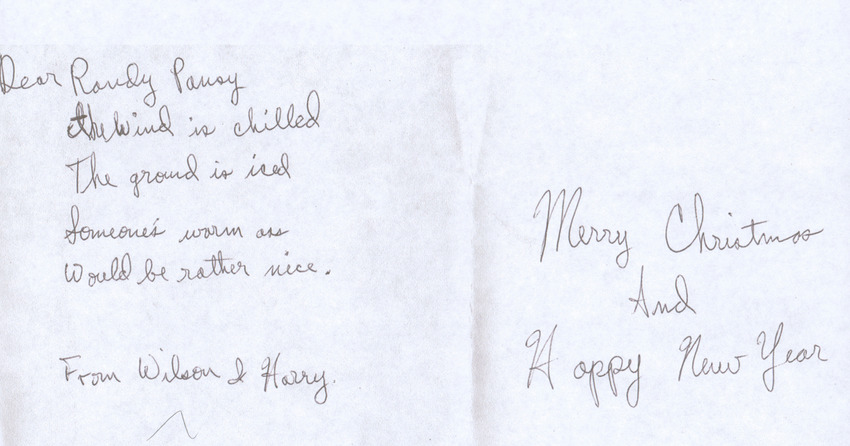 Dear Randy Pansy
the Wind is chilled
The ground is iced
Someone's warm ass
Would be rather nice.
From Wilson & Harry.
Merry Christmas
And
Happy New Year